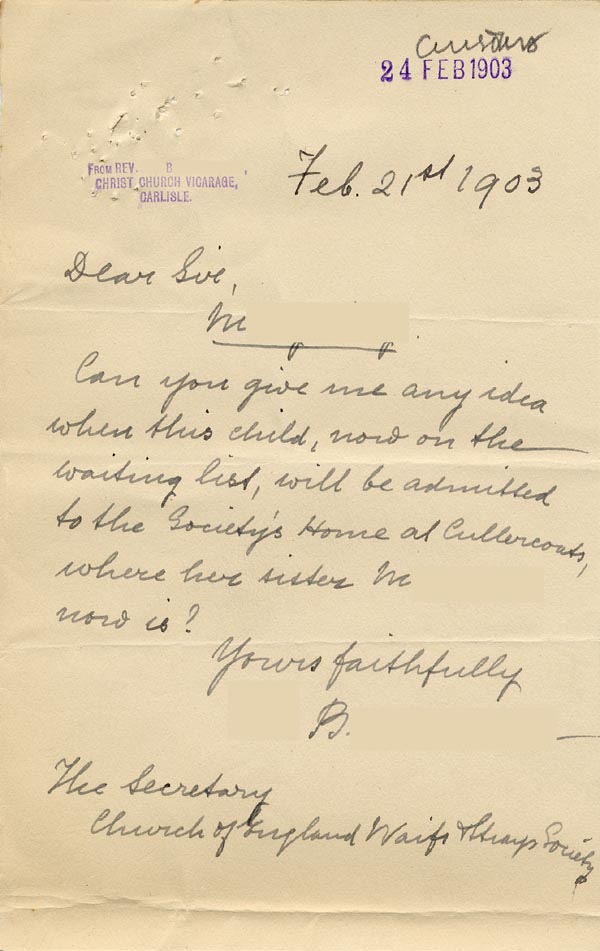 24 FEB 1903
FROM REV. B
CHRIST CHURCH VICARAGE,
CARLISLE.
Feb. 21st 1903
Dear Sir,
M
Can you give me any idea
when this child, now on the
waiting list, will be admitted
to the Society's Home at Cullercoats,
where her sister M
now is?
Yours faithfully
B.
The Secretary
Church of England Waifs & Strays Society